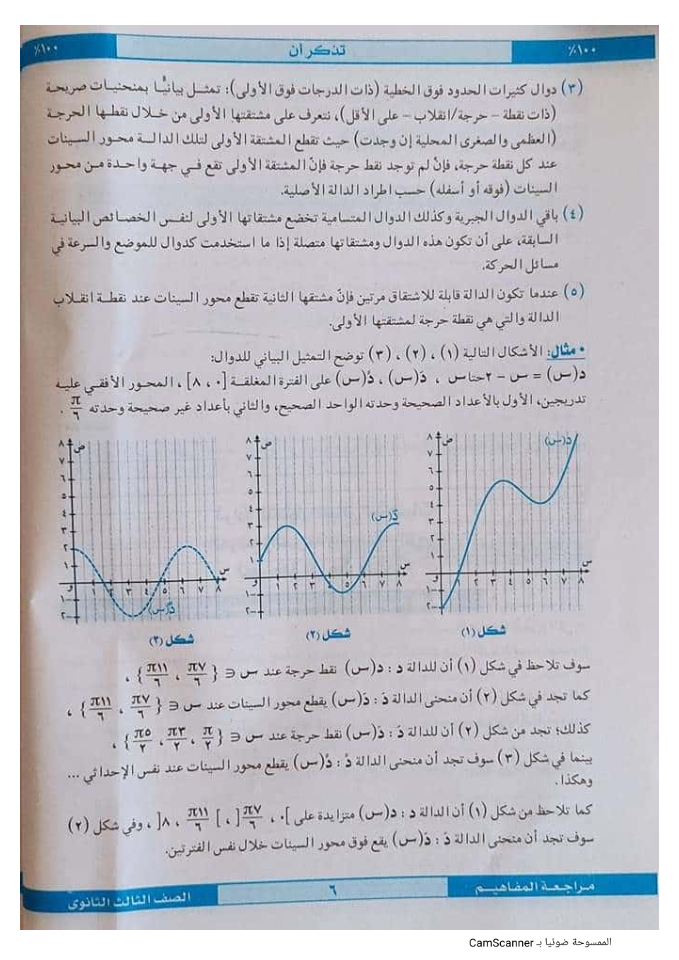 ١٠٠٪ تذكر أن ١٠٠٪
(٣) دوال كثيرات الحدود فوق الخطية (ذات الدرجات فوق الأولى): تمثل بيانيًّا بمنحنيات صريحة
(ذات نقطة - حرجة/انقلاب - على الأقل)، نتعرف على مشتقتها الأولى من خلال نقطها الحرجة
(العظمى والصغرى المحلية إن وجدت) حيث تقطع المشتقة الأولى لتلك الدالة محور السينات
عند كل نقطة حرجة، فإنْ لم توجد نقط حرجة فإنّ المشتقة الأولى تقع في جهة واحدة من محور
السينات (فوقه أو أسفله) حسب اطراد الدالة الأصلية.
(٤) باقي الدوال الجبرية وكذلك الدوال المتسامية تخضع مشتقاتها الأولى لنفس الخصائص البيانية
السابقة، على أن تكون هذه الدوال ومشتقاتها متصلة إذا ما استخدمت كدوال للموضع والسرعة في
مسائل الحركة.
(٥) عندما تكون الدالة قابلة للاشتقاق مرتين فإنّ مشتقها الثانية تقطع محور السينات عند نقطة انقلاب
الدالة والتي هي نقطة حرجة لمشتقتها الأولى.
• مثال: الأشكال التالية (١) ، (٢) ، (٣) توضح التمثيل البياني للدوال:
د(س) = س - ٢حتا س ، دَ(س) ، دً(س) على الفترة المغلقة [٠ ، ٨] ، المحور الأفقي عليه
تدريجين، الأول بالأعداد الصحيحة وحدته الواحد الصحيح، والثاني بأعداد غير صحيحة وحدته π/٦ .
ص ٨ ٧ ٦ ٥ ٤ ٣ ٢ ١ و ١- ٢- ١ ٢ ٣ ٤ ٥ ٦ ٧ ٨ س د(س)
ص ٨ ٧ ٦ ٥ ٤ ٣ ٢ ١ و ١- ٢- ١ ٢ ٣ ٤ ٥ ٦ ٧ ٨ س دَ(س)
ص ٨ ٧ ٦ ٥ ٤ ٣ ٢ ١ و ١- ٢- ١ ٢ ٣ ٤ ٥ ٦ ٧ ٨ س دً(س)
شكل (١) شكل (٢) شكل (٣)
سوف تلاحظ في شكل (١) أن للدالة د : د(س) نقط حرجة عند س ∈ {٧π/٦ ، ١١π/٦} ،
كما تجد في شكل (٢) أن منحنى الدالة دَ : دَ(س) يقطع محور السينات عند س ∈ {٧π/٦ ، ١١π/٦} ،
كذلك؛ تجد من شكل (٢) أن للدالة دَ : دَ(س) نقط حرجة عند س ∈ {π/٢ ، ٣π/٢ ، ٥π/٢} ،
بينما في شكل (٣) سوف تجد أن منحنى الدالة دً : دً(س) يقطع محور السينات عند نفس الإحداثي ...
وهكذا.
كما تلاحظ من شكل (١) أن الدالة د : د(س) متزايدة على ]٠ ، ٧π/٦[ ، ]١١π/٦ ، ٨[ ، وفي شكل (٢)
سوف تجد أن منحنى الدالة دَ : دَ(س) يقع فوق محور السينات خلال نفس الفترتين.
مراجعة المفاهيم ٦ الصف الثالث الثانوى
الممسوحة ضوئيا بـ CamScanner